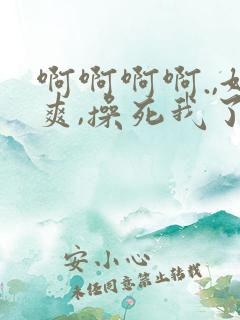 啊啊啊啊.,好
爽,操死我了
安小心
未经同意禁止转载